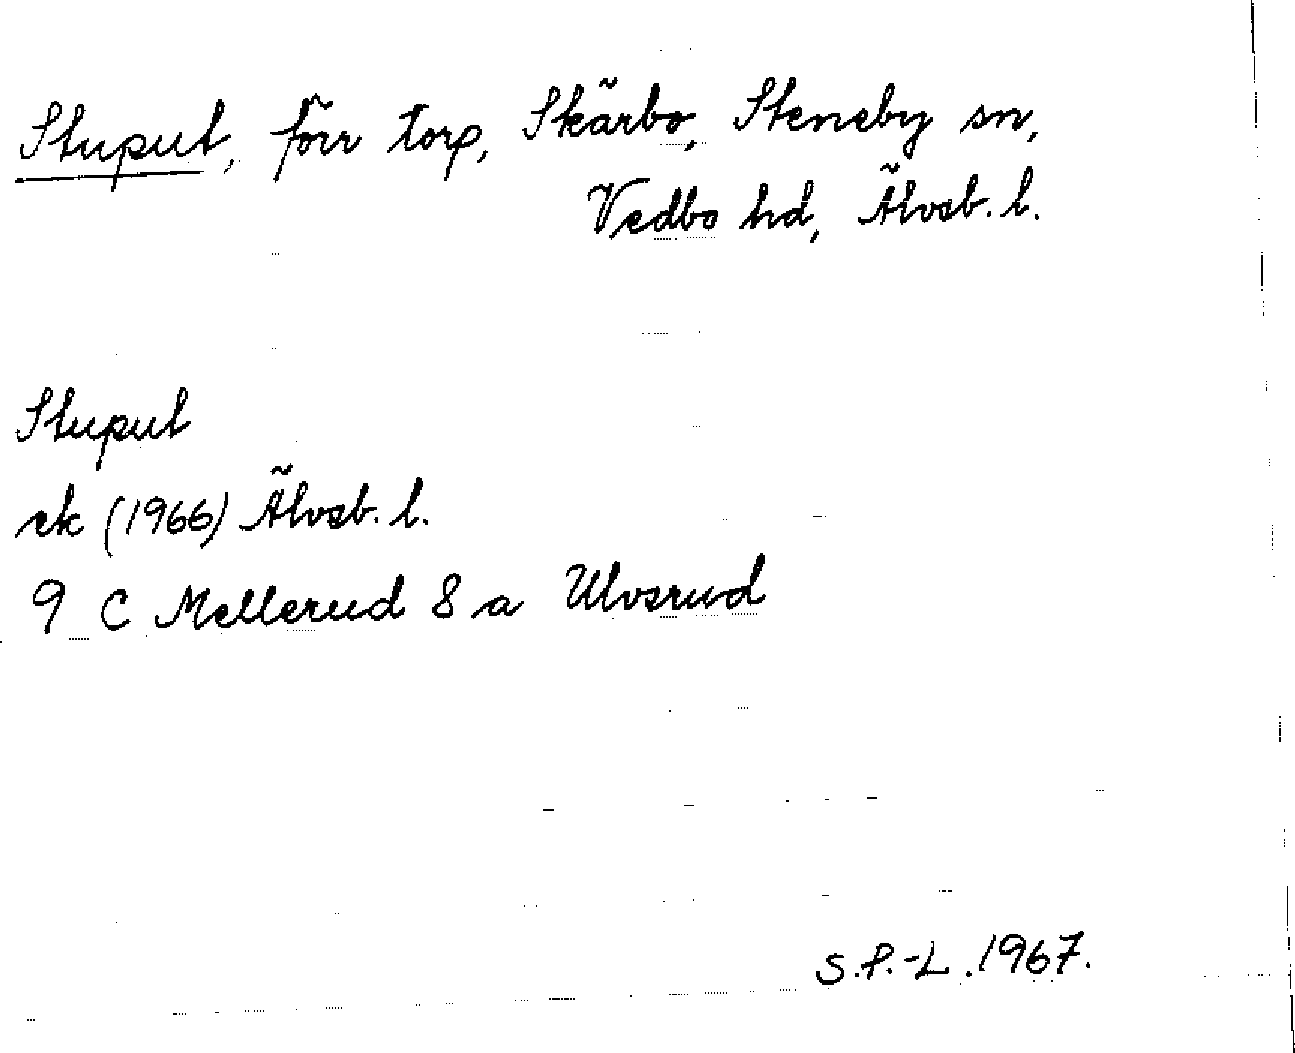 Stuput, förr torp, Skärbo, Steneby sn,
Vedbo hd, Älvsb. l.
Stuput
ek (1966) Älvsb. l.
9 C Mellerud 8 a Ulvsrud
S.P.-L. 1967.